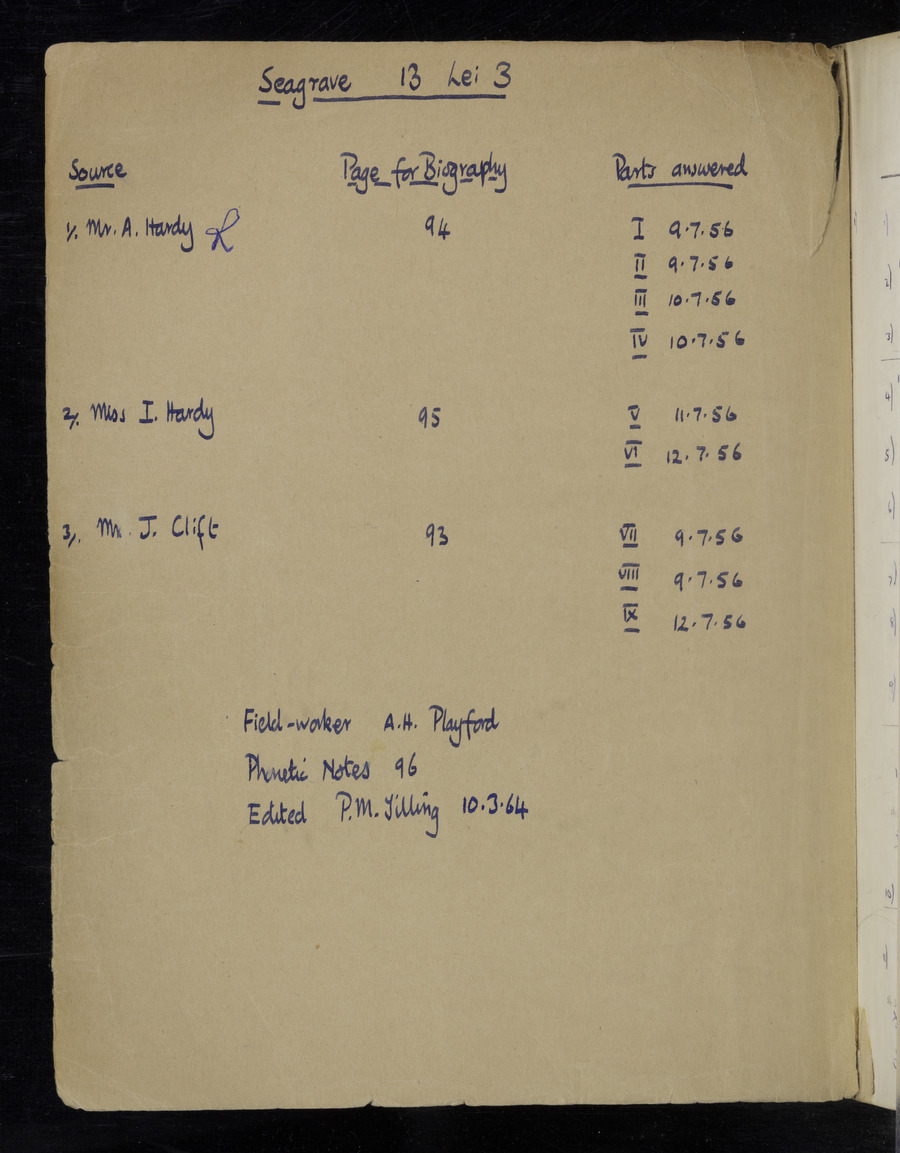 Seagrave 13 Lei 3
Source Page for Biography Parts answered
1/. Mr. A. Hardy R 94 I 9.7.56
II 9.7.56
III 10.7.56
IV 10.7.56
2/. Miss I. Hardy 95 V 11.7.56
VI 12.7.56
3/. Mr. J. Clift 93 VII 9.7.56
VIII 9.7.56
IX 12.7.56
Field-worker A.H. Playford
Phonetic Notes 96
Edited P.M. Tilling 10.3.64